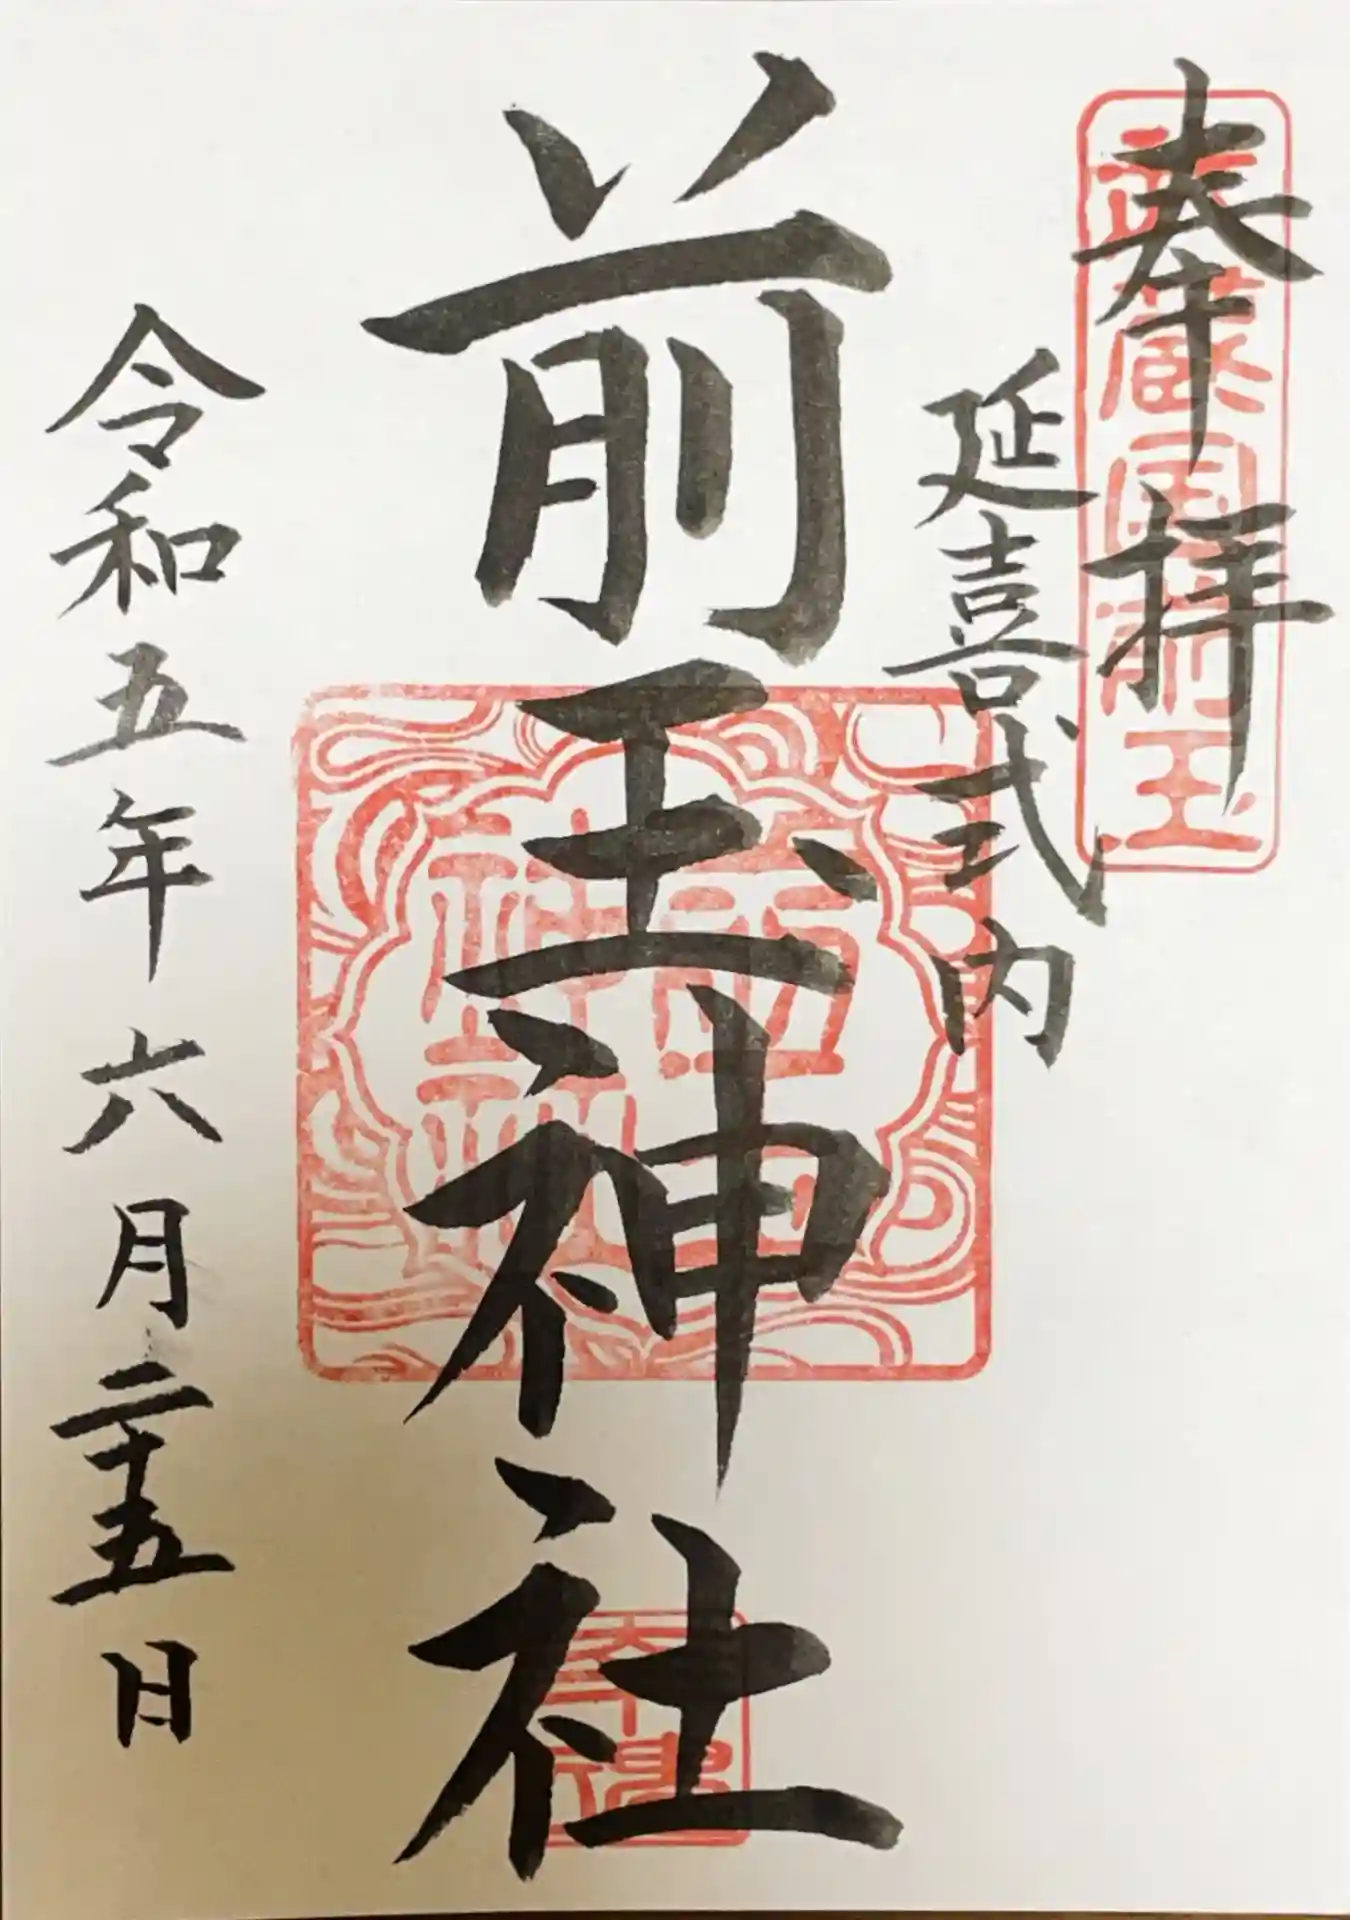 奉拝
武蔵国前玉
延喜式内
前玉神社
前玉神社
令和五年六月二十五日